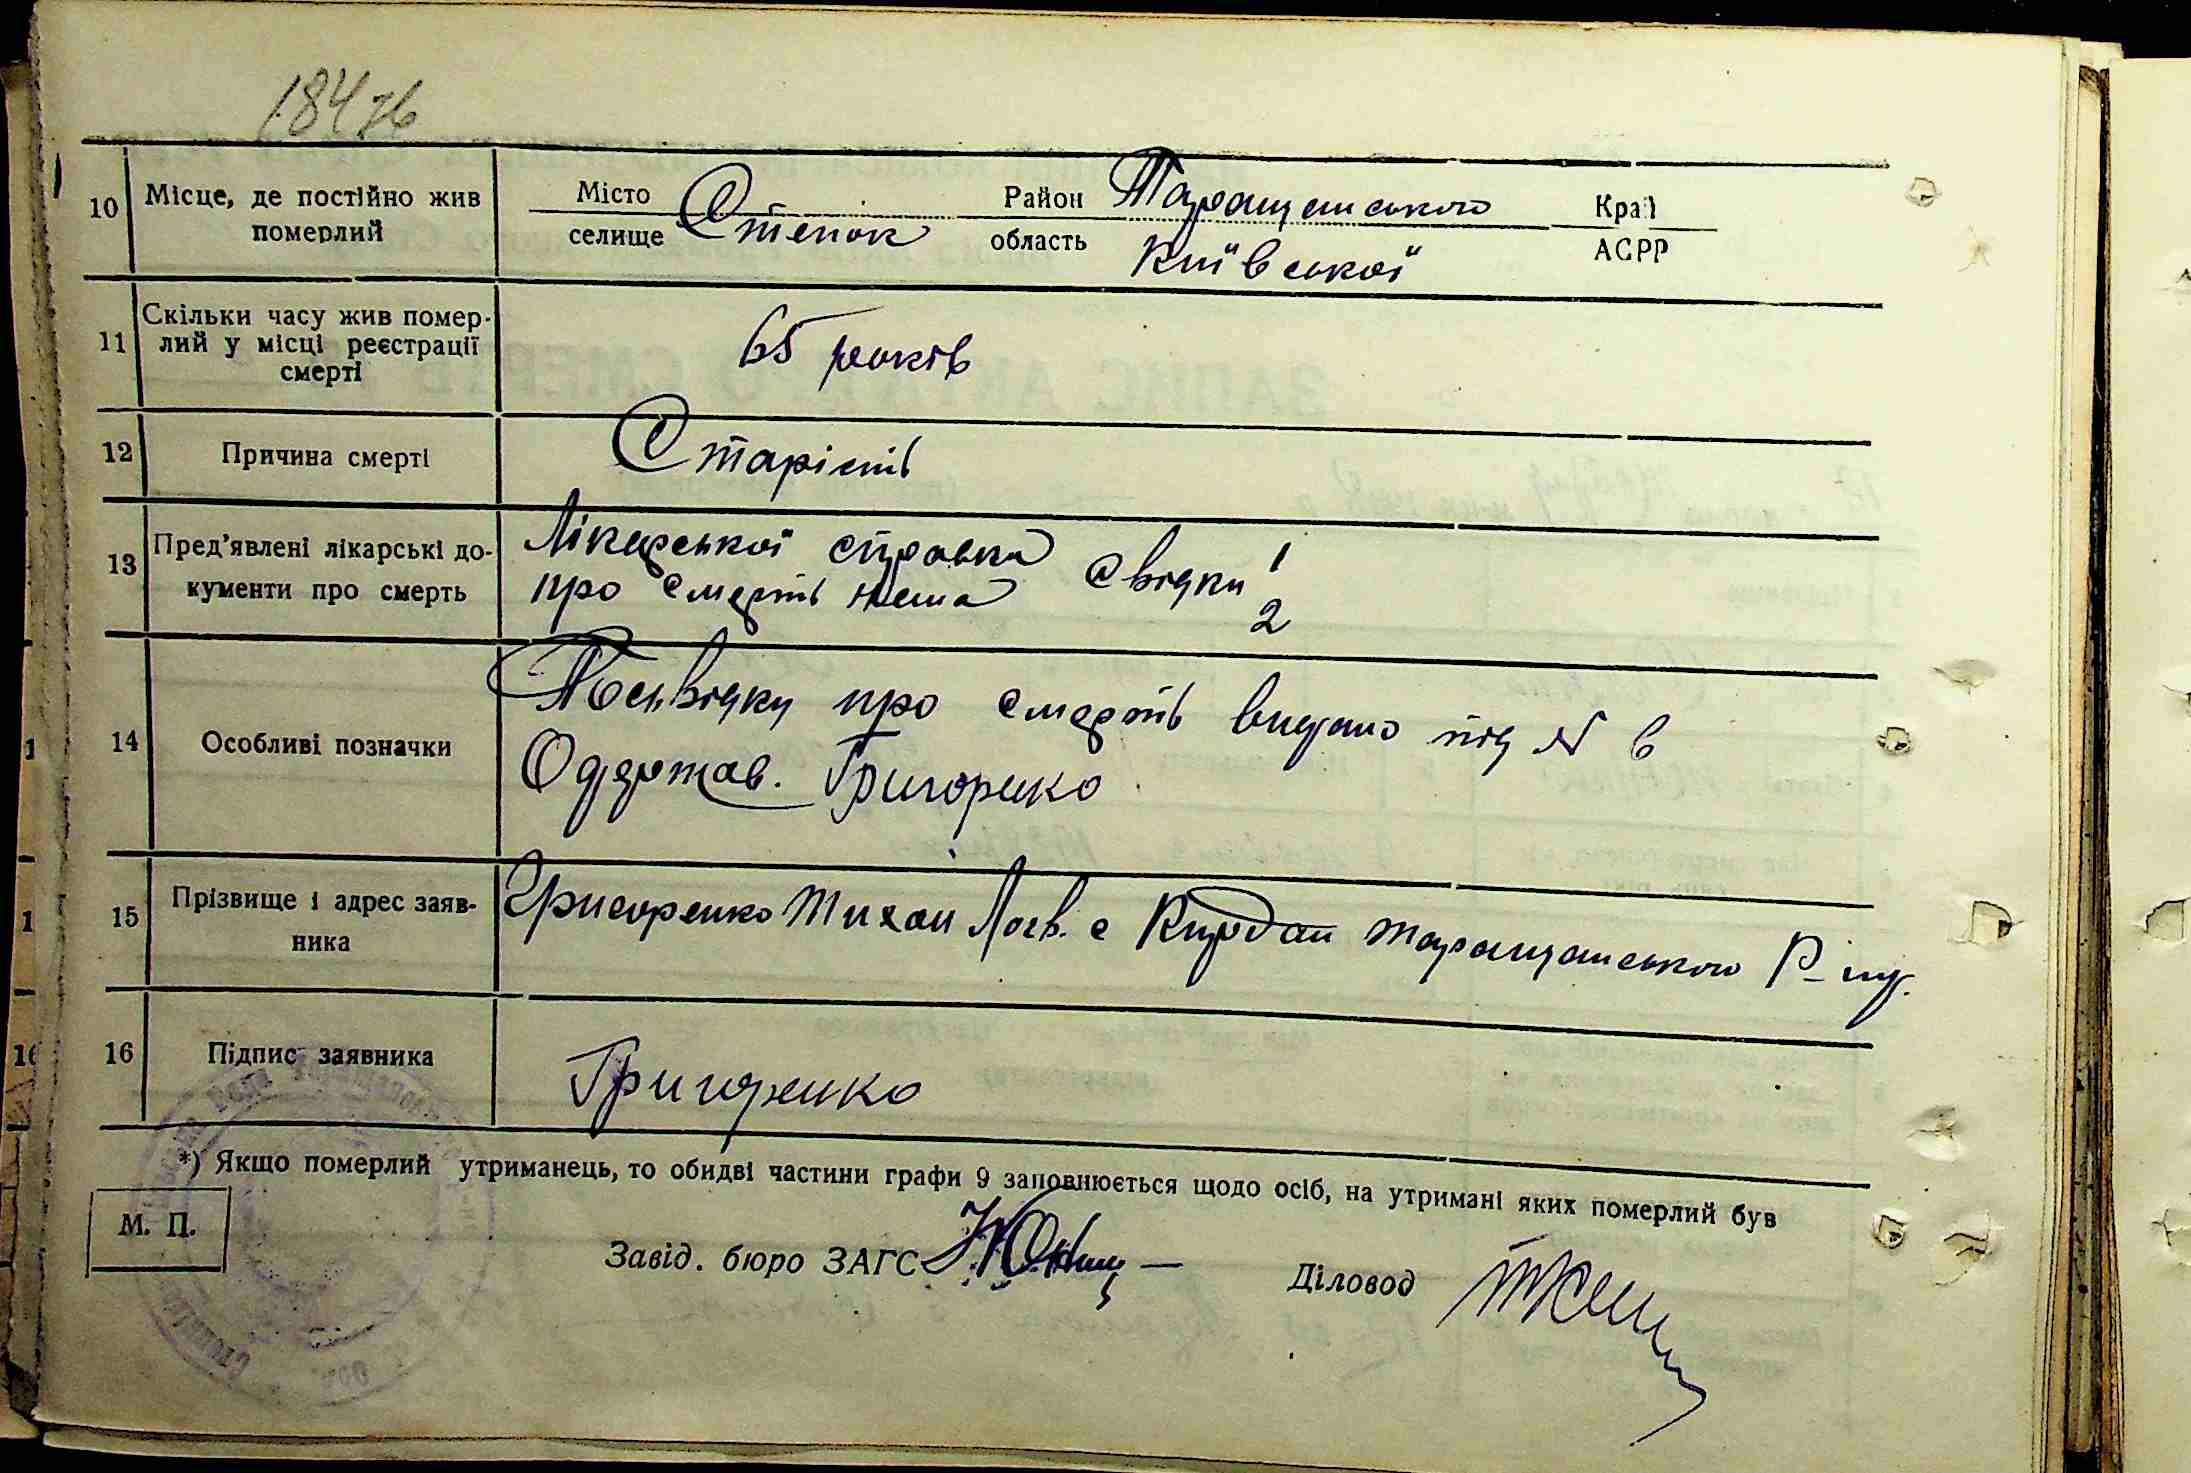 184 зв
10 Місце, де постійно жив померлий
Місто селище Степок Район Таращанського область Київської Край АСРР
11 Скільки часу жив помер-
лий у місці реєстрації
смерті
65 років
12 Причина смерті
Старість
13 Пред'явлені лікарські до-
кументи про смерть
Лікарської справки
про смерть нема Свідки 1
2
14 Особливі позначки
Посвідку про смерть видано під № 6
Одержав. Григоренко
15 Прізвище і адрес заяв-
ника
Григоренко Михай с Кирдан Таращанського Р-ну.
16 Підпис заявника
Григоренко
*) Якщо померлий утриманець, то обидві частини графи 9 заповнюється щодо осіб, на утримані яких померлий був
М. П.
Завід. бюро ЗАГС
Діловод